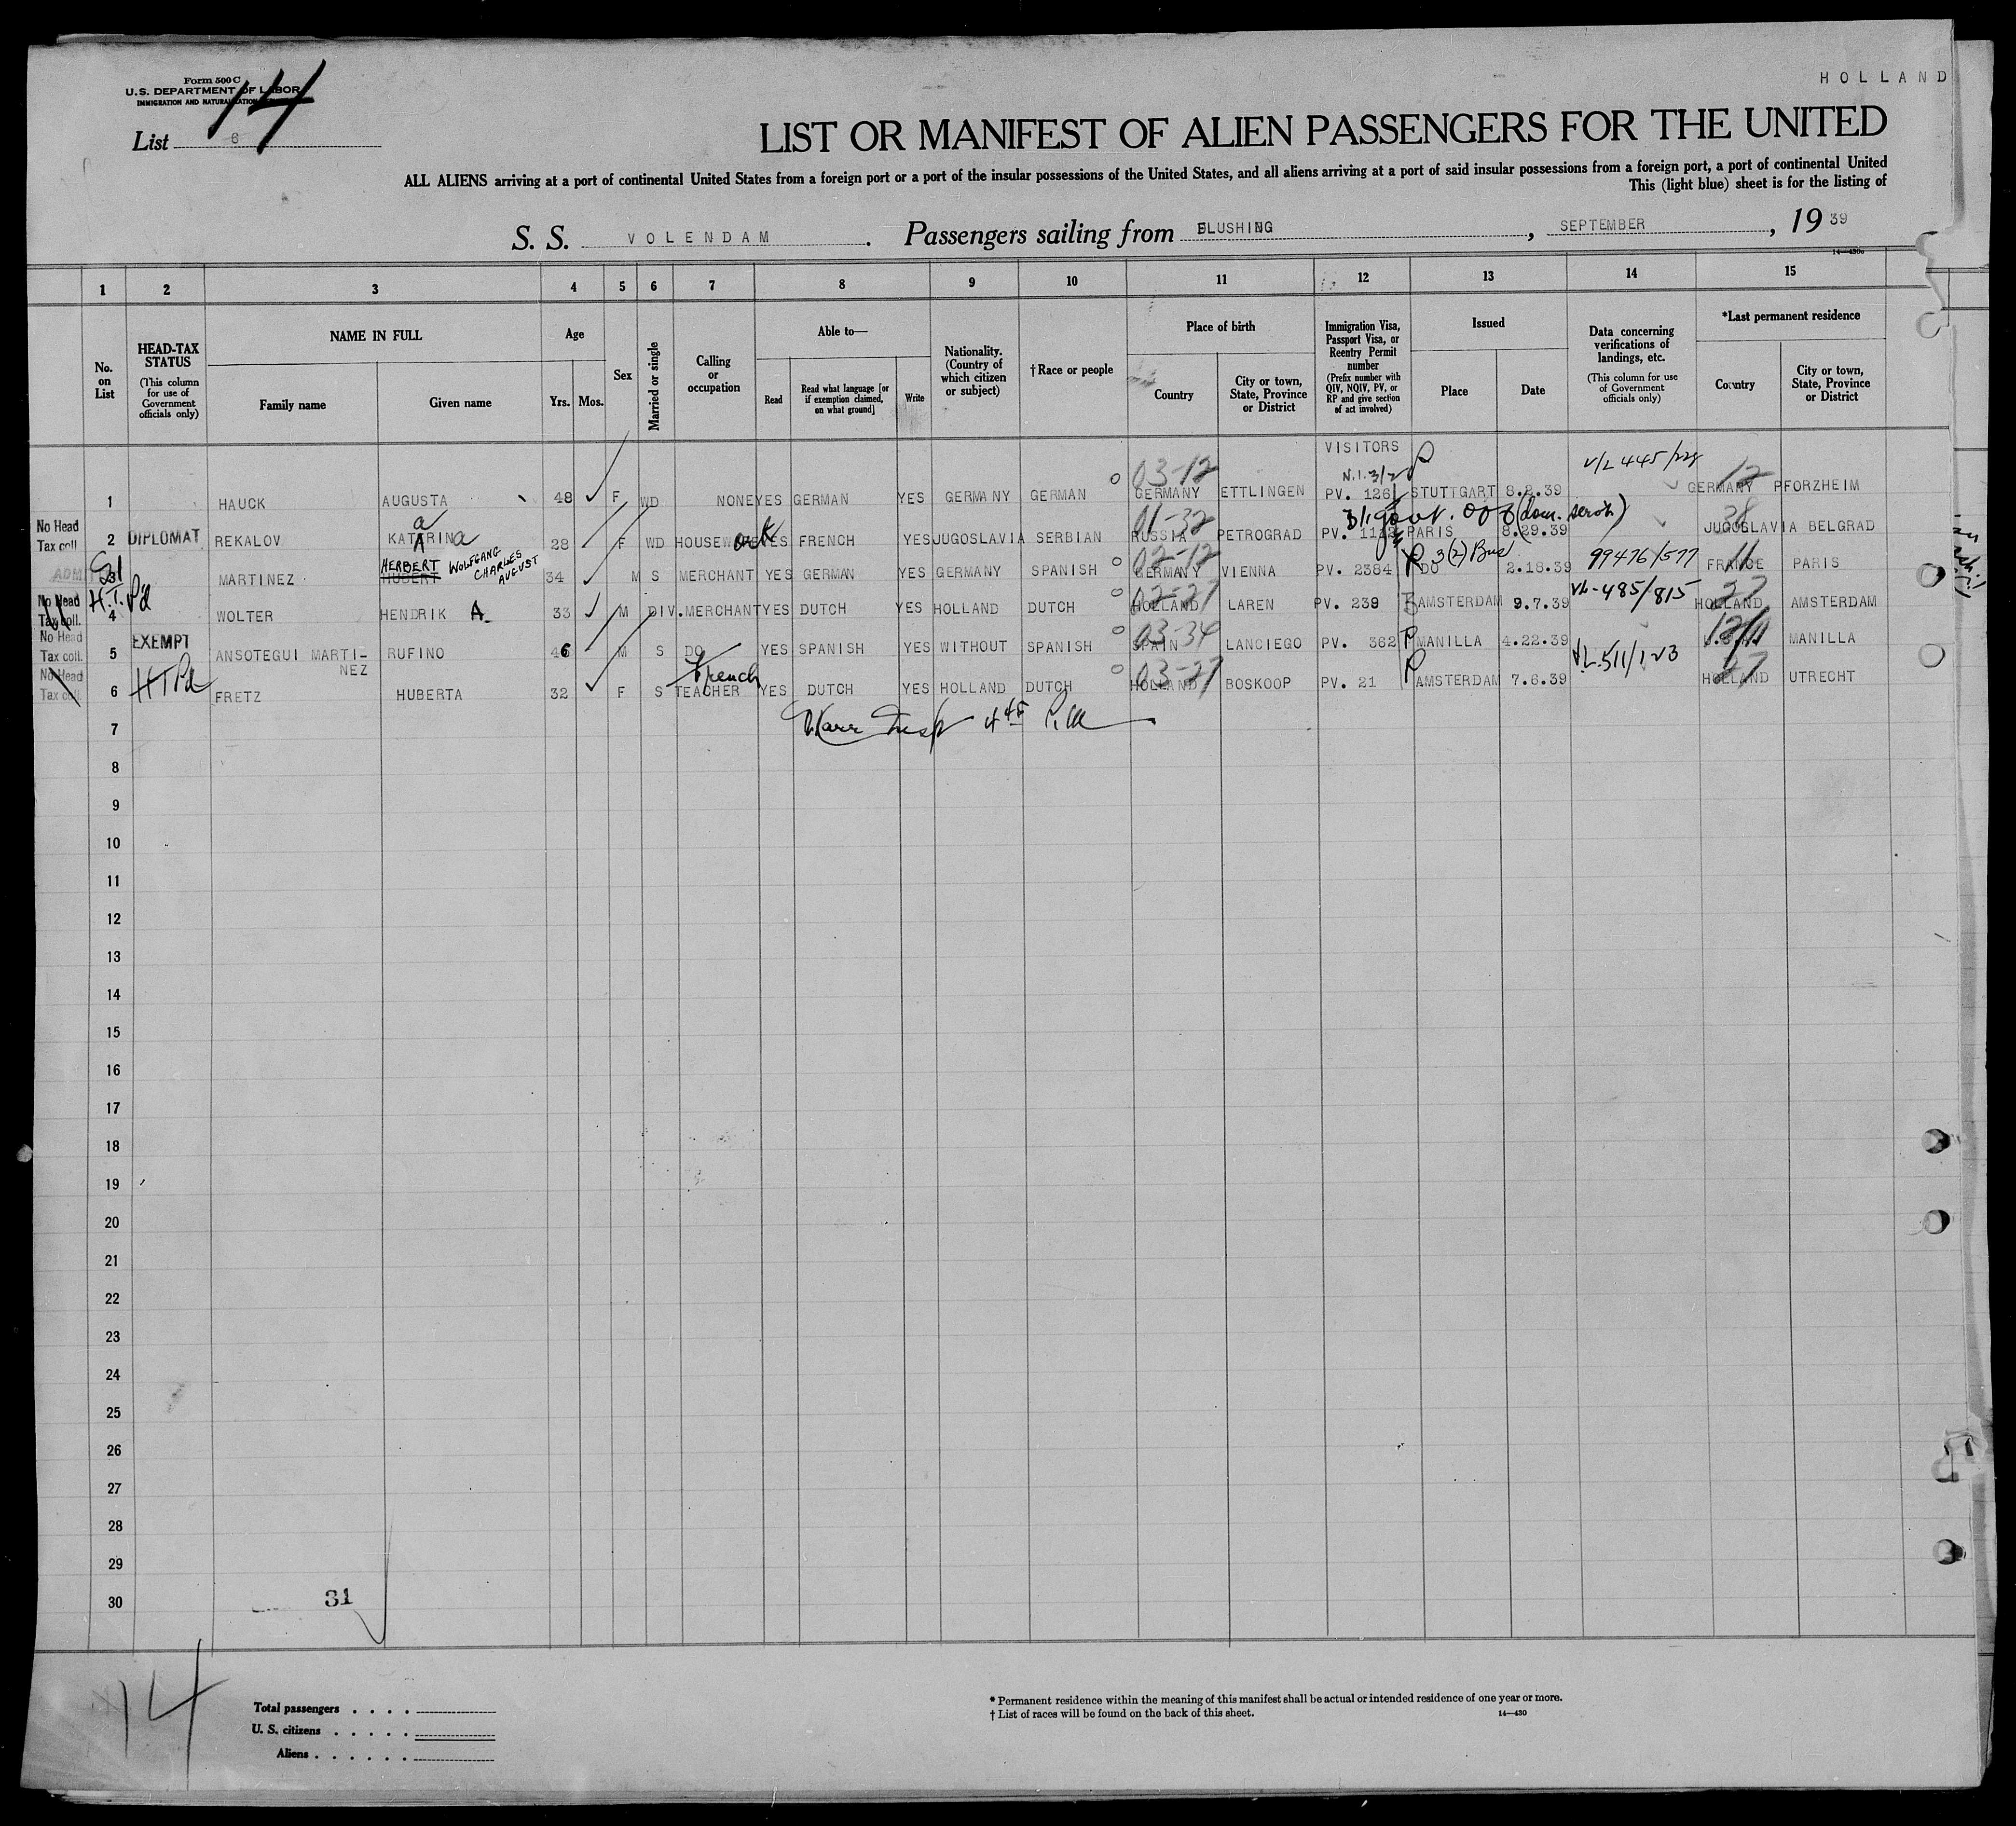 Form 500 C
U.S. DEPARTMENT OF LABOR
IMMIGRATION AND NATURALIZATION
14
List 6
HOLLAND
LIST OR MANIFEST OF ALIEN PASSENGERS FOR THE UNITED
ALL ALIENS arriving at a port of continental United States from a foreign port or a port of the insular possessions of the United States, and all aliens arriving at a port of said insular possessions from a foreign port, a port of continental United
This (light blue) sheet is for the listing of
S. S. VOLENDAM. Passengers sailing from FLUSHING, SEPTEMBER, 19 39
14—430c
1 2 3 4 5 6 7 8 9 10 11 12 13 14 15
No. on List
HEAD-TAX STATUS (This column for use of Government officials only)
NAME IN FULL Family name Given name
Age Yrs. Mos.
Sex
Married or single
Calling or occupation
Able to— Read Read what language [or if exemption claimed, on what ground] Write
Nationality. (Country of which citizen or subject)
† Race or people
Place of birth Country City or town, State, Province or District
Immigration Visa, Passport Visa, or Reentry Permit number (Prefix number with QIV, NQIV, PV, or RP and give section of act involved)
Issued Place Date
Data concerning verifications of landings, etc. (This column for use of Government officials only)
*Last permanent residence Country City or town, State, Province or District
VISITORS
N.I. 3/2 P V/L 445/
03-12 12
1 HAUCK AUGUSTA 48 F WD NONE YES GERMAN YES GERMANY GERMAN GERMANY ETTLINGEN PV. 126 STUTTGART 8.2.39 GERMANY PFORZHEIM
01-32 3/1 govt. off (dom. serv.) 38
No Head Tax coll 2 DIPLOMAT REKALOV KATARINA 28 F WD HOUSEWORK YES FRENCH YES JUGOSLAVIA SERBIAN RUSSIA PETROGRAD PV. 1112 PARIS 8.29.39 JUGOSLAVIA BELGRAD
HERBERT WOLFGANG CHARLES AUGUST 02-12 P 3(2) Bus 99476/577 11
MARTINEZ HUBERT 34 M S MERCHANT YES GERMAN YES GERMANY SPANISH GERMANY VIENNA PV. 2384 DO 2.18.39 FRANCE PARIS
H.T. Pd 02-27 VL-485/815 27
No Head Tax coll. 4 WOLTER HENDRIK A. 33 M DIV. MERCHANT YES DUTCH YES HOLLAND DUTCH HOLLAND LAREN PV. 239 AMSTERDAM 9.7.39 HOLLAND AMSTERDAM
03-34 P
No Head Tax coll. 5 EXEMPT ANSOTEGUI MARTI- NEZ RUFINO 46 M S DO YES SPANISH YES WITHOUT SPANISH SPAIN LANCIEGO PV. 362 MANILLA 4.22.39 MANILLA
French 03-27 P VL.511/123 27
No Head Tax coll 6 HT Pd FRETZ HUBERTA 32 F S TEACHER YES DUTCH YES HOLLAND DUTCH HOLLAND BOSKOOP PV. 21 AMSTERDAM 7.6.39 HOLLAND UTRECHT
7
8
9
10
11
12
13
14
15
16
17
18
19
20
21
22
23
24
25
26
27
28
29
30
31
14
Total passengers . . . .
U. S. citizens . . . . .
Aliens . . . . . .
* Permanent residence within the meaning of this manifest shall be actual or intended residence of one year or more.
† List of races will be found on the back of this sheet.
14—430